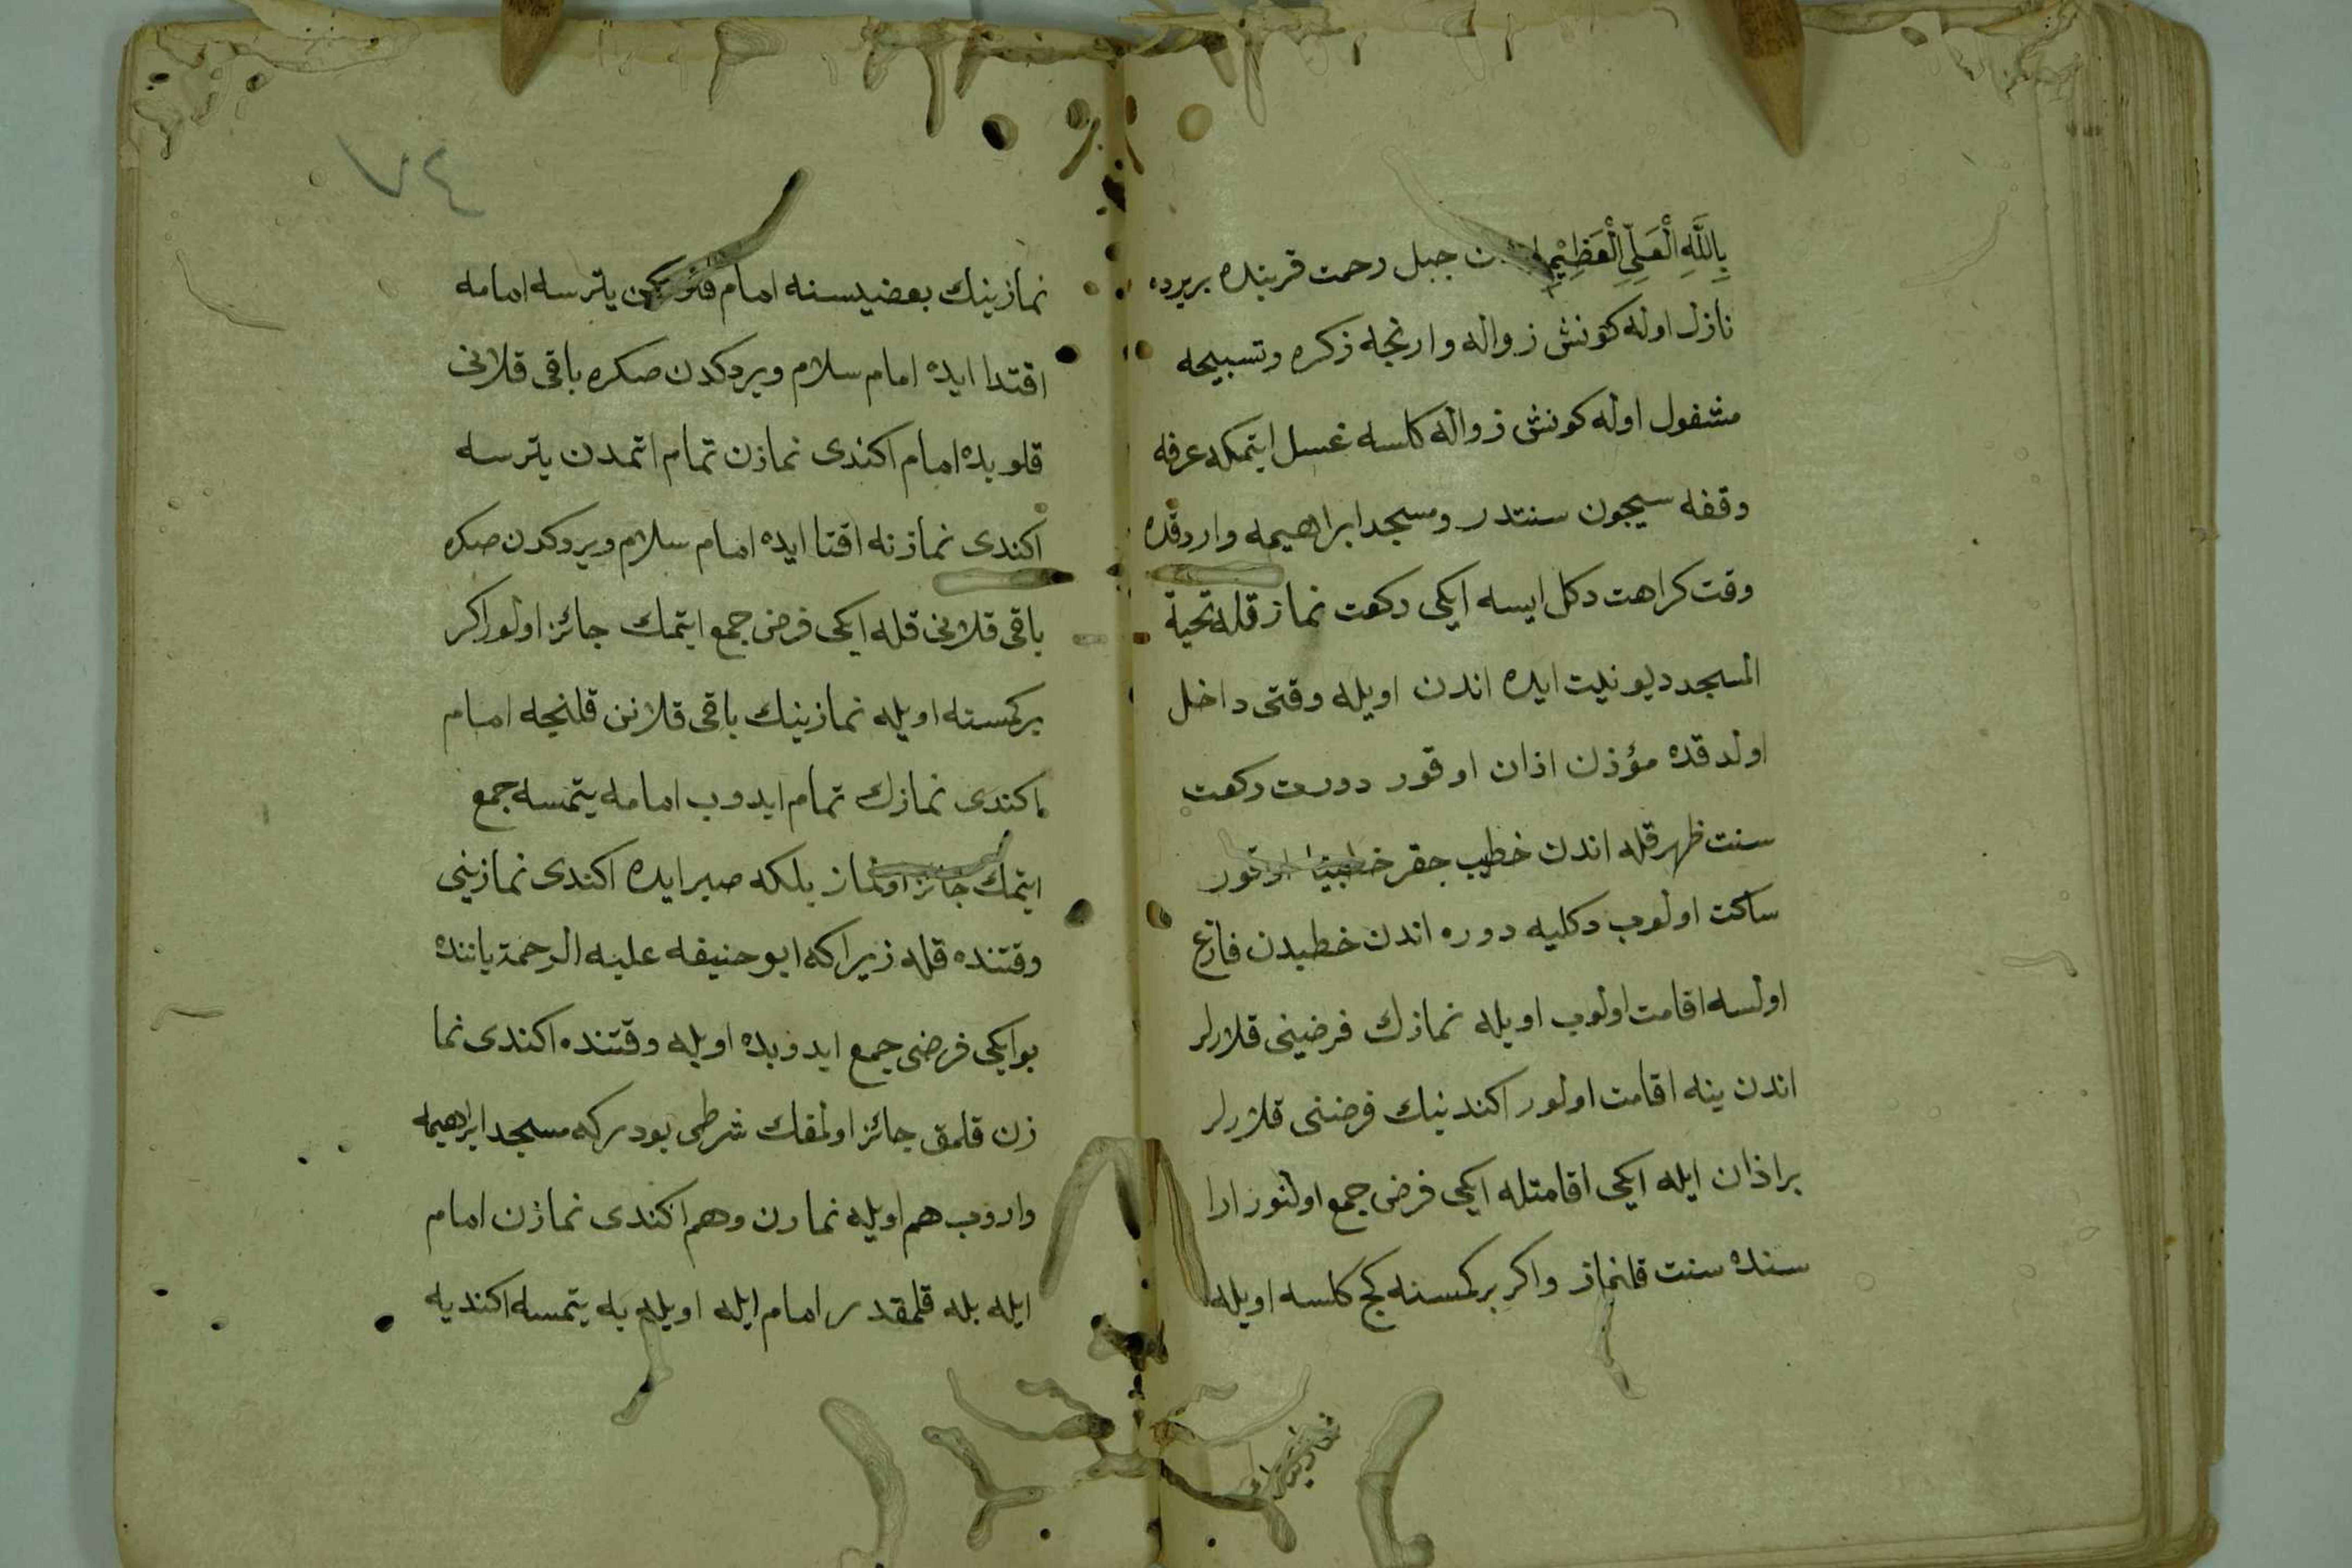 بِاللَّهِ الْعَلِىِّ الْعَظِيْمِ جبل رحمت قربنده بر يرده
نازل اوله كونش زواله وارنجه ذكره وتسبيحه
مشغول اوله كونش زواله كلسه غسل ايتمكه عرفه
وقفه سيچون سنتدر ومسجد ابراهيمه واردقده
وقت كراهت دكل ايسه ايكى ركعت نماز قله تحية
المسجد ديو نيت ايده اندن اويله وقتى داخل
اولدقده مؤذن اذان اوقور دورت ركعت
سنت ظهر قله اندن خطيب چقر خطبيه اوقور
ساكت اولوب دكليه دوره اندن خطبدن فارغ
اولسه اقامت اولوب اويله نمازك فرضينى قلارلر
اندن ينه اقامت اولور اكندينك فرضنى قلارلر
بر اذان ايله ايكى اقامتله ايكى فرض جمع اولنور ارا
سنده سنت قلنماز واكر بر كمسنه كچ كلسه اويله
نمازينك
٧٤
نمازينك بعضيسنه امام يترسه امامه
اقتدا ايده امام سلام ويردكدن صكره باقى قلانى
قلوبده امام اكندى نمازن تمام اتمدن يترسه
اكندى نمازنه اقتا ايده امام سلام ويردكدن صكره
باقى قلانى قله ايكى فرض جمع ايتمك جائز اولور اكر
بر كمسته اويله نمازينك باقى قلانن قلنجه امام
اكندى نمازك تمام ايدوب امامه يتمسه جمع
ايتمك جائز اولماز بلكه صبر ايده اكندى نمازينى
وقتنده قله زيرا كه ابو حنيفه عليه الرحمة ياننده
بو ايكى فرضى جمع ايدوبده اويله وقتنده اكندى نما
زن قلمق جائز اولمقك شرطى بودر كه مسجد ابراهيمه
واروب هم اويله نمازن وهم اكندى نمازن امام
ايله بله قلمقدر امام ايله اويله يه يتمسه اكنديه